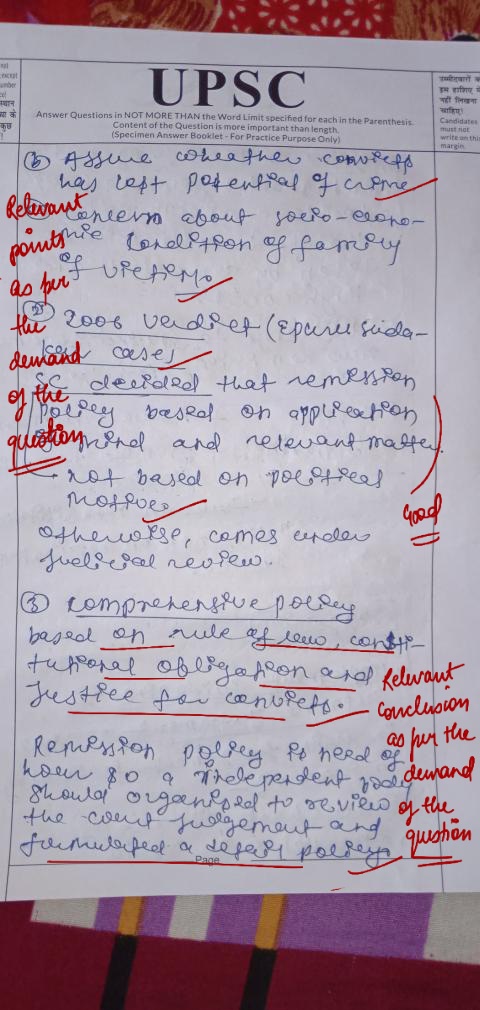 UPSC
Answer Questions in NOT MORE THAN the Word Limit specified for each in the Parenthesis.
Content of the Question is more important than length.
(Specimen Answer Booklet - For Practice Purpose Only)
not
except
number
स्थान
या के
कुछ
उम्मीदवारों को
इस हाशिए में
नहीं लिखना
चाहिए।
Candidates
must not
write on this
margin.
Assure wheather convicts
has lost potential of crime
concern about socio-econo-
mic condition of family
of victim.
2006 verdict (Epuru Suda-
kar case)
SC decided that remission
policy based on application
of mind and relevant matter.
not based on political
motive
otherwise, comes under
judicial review.
③ comprehensive policy
based on rule of law, consti-
tutional obligation and
Justice for convicts.
Remission policy is need of
hour so a independent body
should organised to review
the court judgement and
formulated a policy.
Page
Relevant
points
as per
the
demand
of the
question
Good
Relevant
conclusion
as per the
demand
of the
question